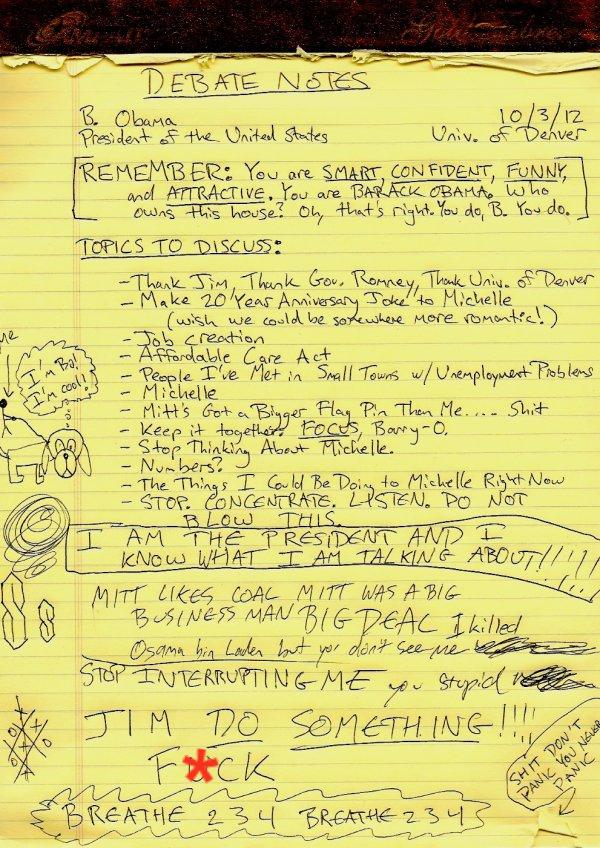 DEBATE NOTES
B. Obama 10/3/12
President of the United States Univ. of Denver
REMEMBER: You are SMART, CONFIDENT, FUNNY,
and ATTRACTIVE. You are BARACK OBAMA. Who
owns this house? Oh, that's right. You do, B. You do.
TOPICS TO DISCUSS:
- Thank Jim, Thank Gov. Romney, Thank Univ. of Denver
- Make 20 Year Anniversary Joke to Michelle
(wish we could be somewhere more romantic!)
- Job creation
- Affordable Care Act
- People I've Met in Small Towns w/ Unemployment Problems
- Michelle
- Mitt's Got a Bigger Flag Pin Than Me.... Shit
- Keep it together. FOCUS, Barry-O.
- Stop Thinking About Michelle.
- Numbers?
- The Things I Could Be Doing to Michelle Right Now
- STOP. CONCENTRATE. LISTEN. DO NOT
BLOW THIS.
me
I'm Bo!
I'm cool!
I AM THE PRESIDENT AND I
KNOW WHAT I AM TALKING ABOUT!!!!!
MITT LIKES COAL MITT WAS A BIG
BUSINESS MAN BIG DEAL I killed
Osama bin Laden but you don't see me
STOP INTERRUPTING ME you stupid
JIM DO SOMETHING!!!!
F*CK
SHIT DON'T
PANIC YOU NEVER
PANIC
BREATHE 2 3 4 BREATHE 2 3 4